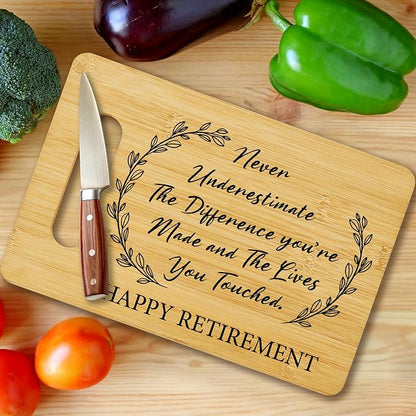 Never
Underestimate
The Difference you're
Made and The Lives
You Touched.
HAPPY RETIREMENT